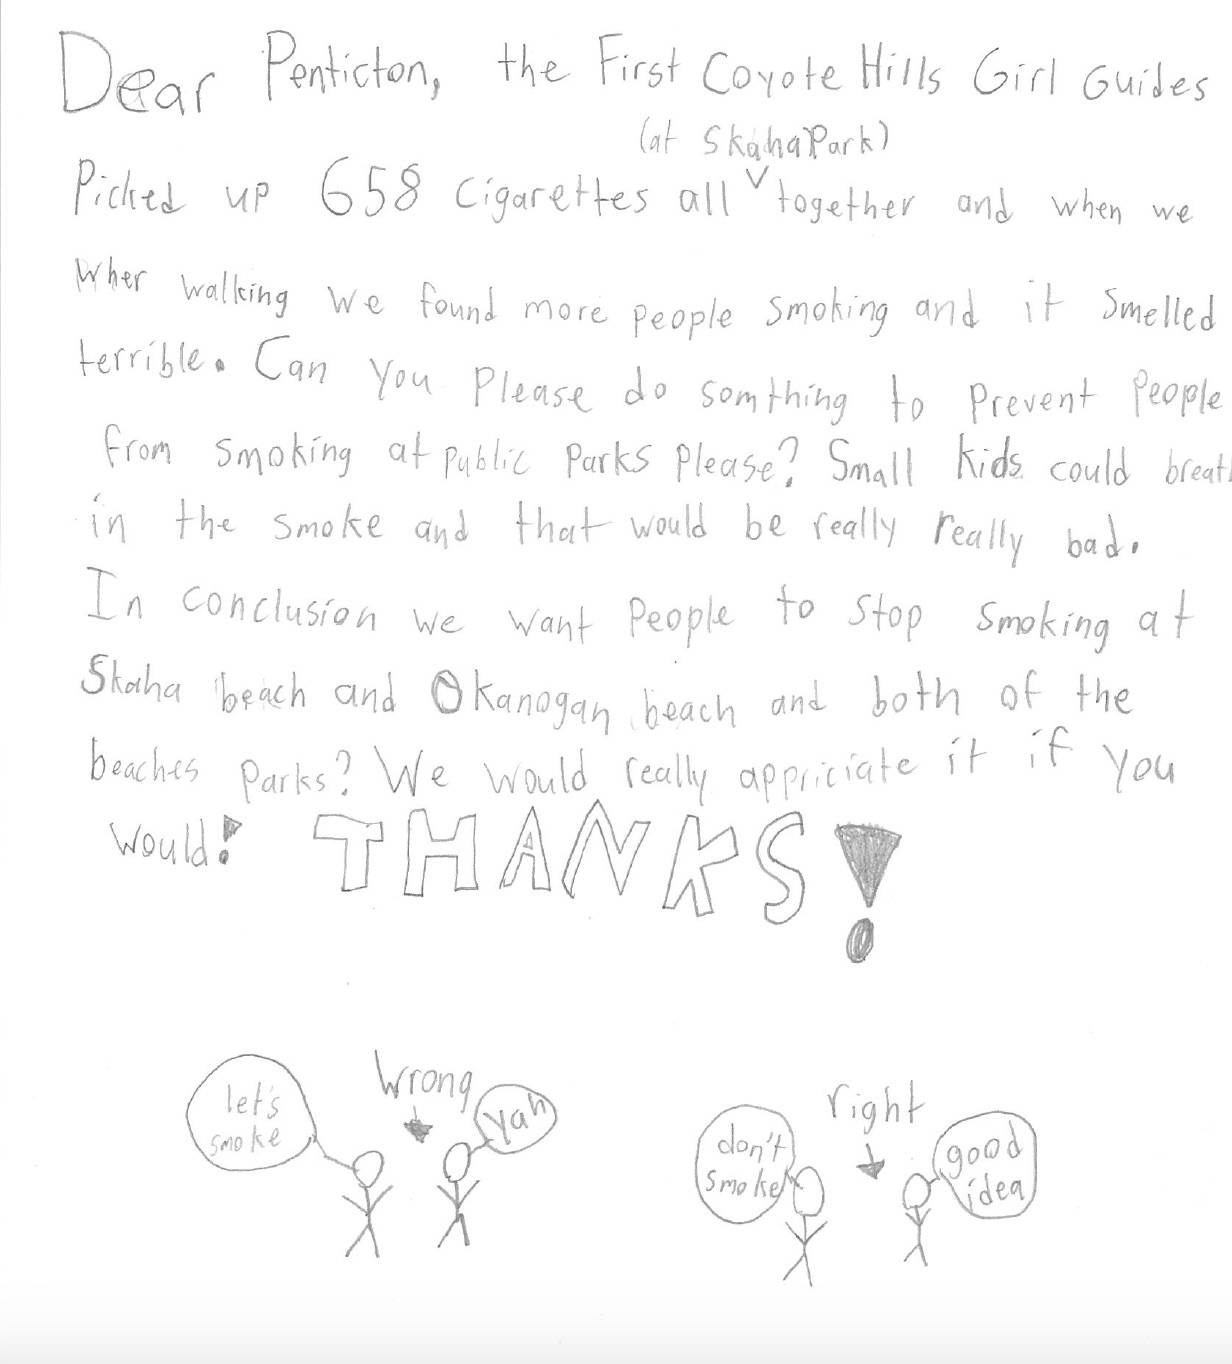 Dear Penticton, the First Coyote Hills Girl Guides
(at Skaha Park)
Picked up 658 Cigarettes all ∨ together and when we
wher walking we found more people smoking and it smelled
terrible. Can you Please do somthing to Prevent People
from smoking at public Parks Please? Small kids could breath
in the smoke and that would be really really bad.
In conclusion we want People to stop smoking at
Skaha beach and Okanogan beach and both of the
beaches parks? We would really appriciate it if you
would! THANKS!
Wrong
let's
smoke
yah
right
don't
smoke
good
idea